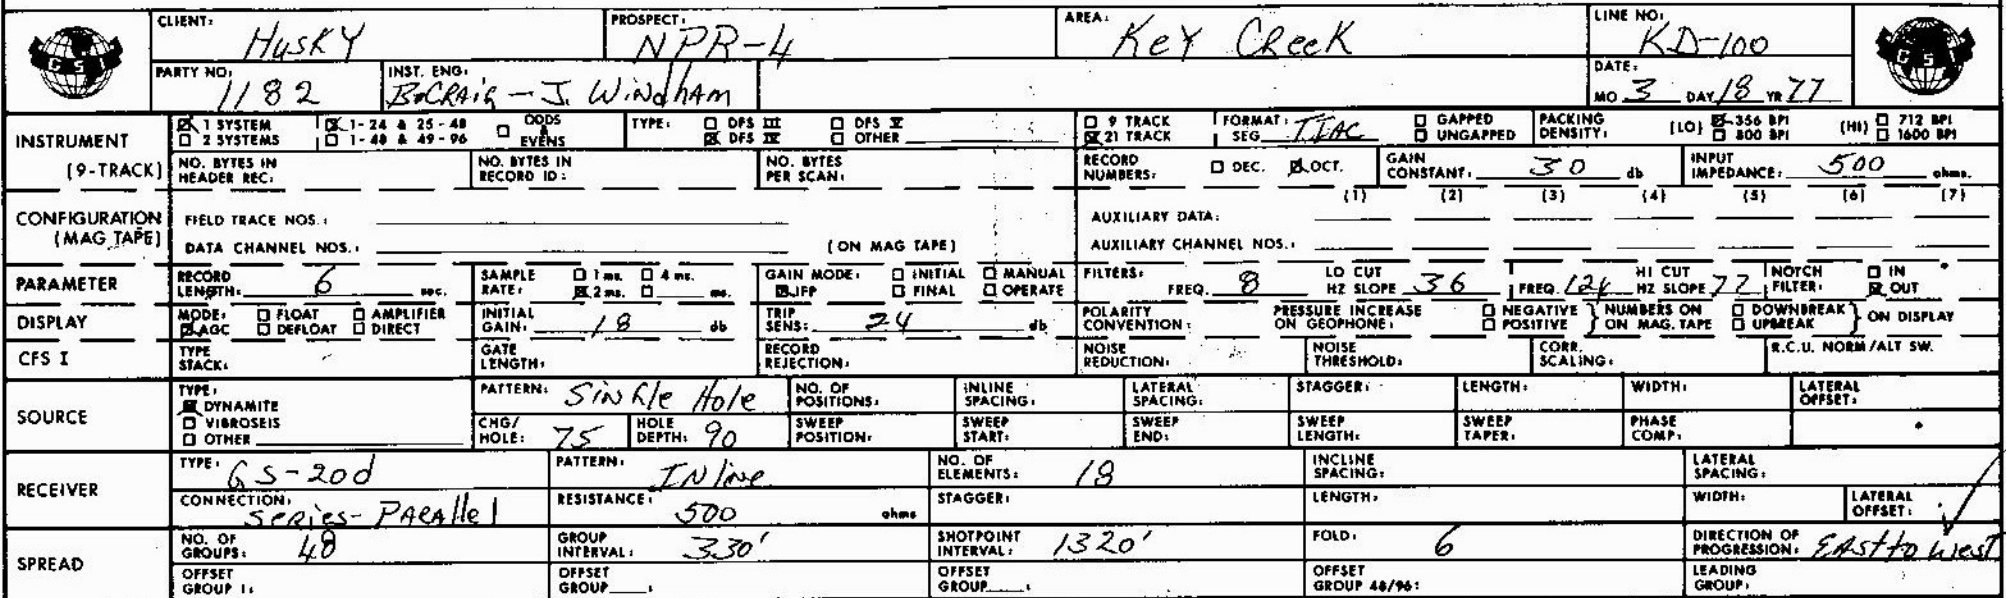 CLIENT: Husky PROSPECT: NPR-4 AREA: Key Creek LINE NO: KD-100
GSI GSI
PARTY NO: 1182 INST. ENG: B. CRAIG - J. Windham DATE: MO 3 DAY 18 YR 77
INSTRUMENT 1 SYSTEM 1-24 & 25-48 ODDS & EVENS TYPE: DFS III DFS V 9 TRACK FORMAT: GAPPED PACKING DENSITY: (LO) 356 BPI (HI) 712 BPI
2 SYSTEMS 1-48 & 49-96 DFS IV OTHER 21 TRACK SEG TIAC UNGAPPED 800 BPI 1600 BPI
(9-TRACK) NO. BYTES IN HEADER REC: NO. BYTES IN RECORD ID: NO. BYTES PER SCAN: RECORD NUMBERS: DEC. OCT. GAIN CONSTANT: 30 db INPUT IMPEDANCE: 500 ohms.
(1) (2) (3) (4) (5) (6) (7)
CONFIGURATION FIELD TRACE NOS.: AUXILIARY DATA:
(MAG TAPE) DATA CHANNEL NOS.: (ON MAG TAPE) AUXILIARY CHANNEL NOS.:
PARAMETER RECORD LENGTH: 6 sec. SAMPLE RATE: 1 ms. 4 ms. 2 ms. ms. GAIN MODE: INITIAL MANUAL IFP FINAL OPERATE FILTERS: FREQ. 8 LO CUT HZ SLOPE 36 FREQ. 124 HI CUT HZ SLOPE 72 NOTCH FILTER: IN OUT
DISPLAY MODE: FLOAT AMPLIFIER AGC DEFLOAT DIRECT INITIAL GAIN: 18 db TRIP SENS: 24 db POLARITY CONVENTION: PRESSURE INCREASE ON GEOPHONE: NEGATIVE POSITIVE NUMBERS ON ON MAG. TAPE DOWNBREAK UPBREAK ON DISPLAY
CFS I TYPE STACK: GATE LENGTH: RECORD REJECTION: NOISE REDUCTION: NOISE THRESHOLD: CORR. SCALING: R.C.U. NORM/ALT SW.
SOURCE TYPE: DYNAMITE VIBROSEIS OTHER PATTERN: Single Hole NO. OF POSITIONS: INLINE SPACING: LATERAL SPACING: STAGGER: LENGTH: WIDTH: LATERAL OFFSET:
CHG/HOLE: 75 HOLE DEPTH: 90 SWEEP POSITION: SWEEP START: SWEEP END: SWEEP LENGTH: SWEEP TAPER: PHASE COMP:
RECEIVER TYPE: GS-20d PATTERN: INline NO. OF ELEMENTS: 18 INCLINE SPACING: LATERAL SPACING:
CONNECTION: Series-PARAllel RESISTANCE: 500 ohms STAGGER: LENGTH: WIDTH: LATERAL OFFSET:
SPREAD NO. OF GROUPS: 48 GROUP INTERVAL: 330' SHOTPOINT INTERVAL: 1320' FOLD: 6 DIRECTION OF PROGRESSION: EAst to West
OFFSET GROUP 1: OFFSET GROUP : OFFSET GROUP : OFFSET GROUP 48/96: LEADING GROUP: